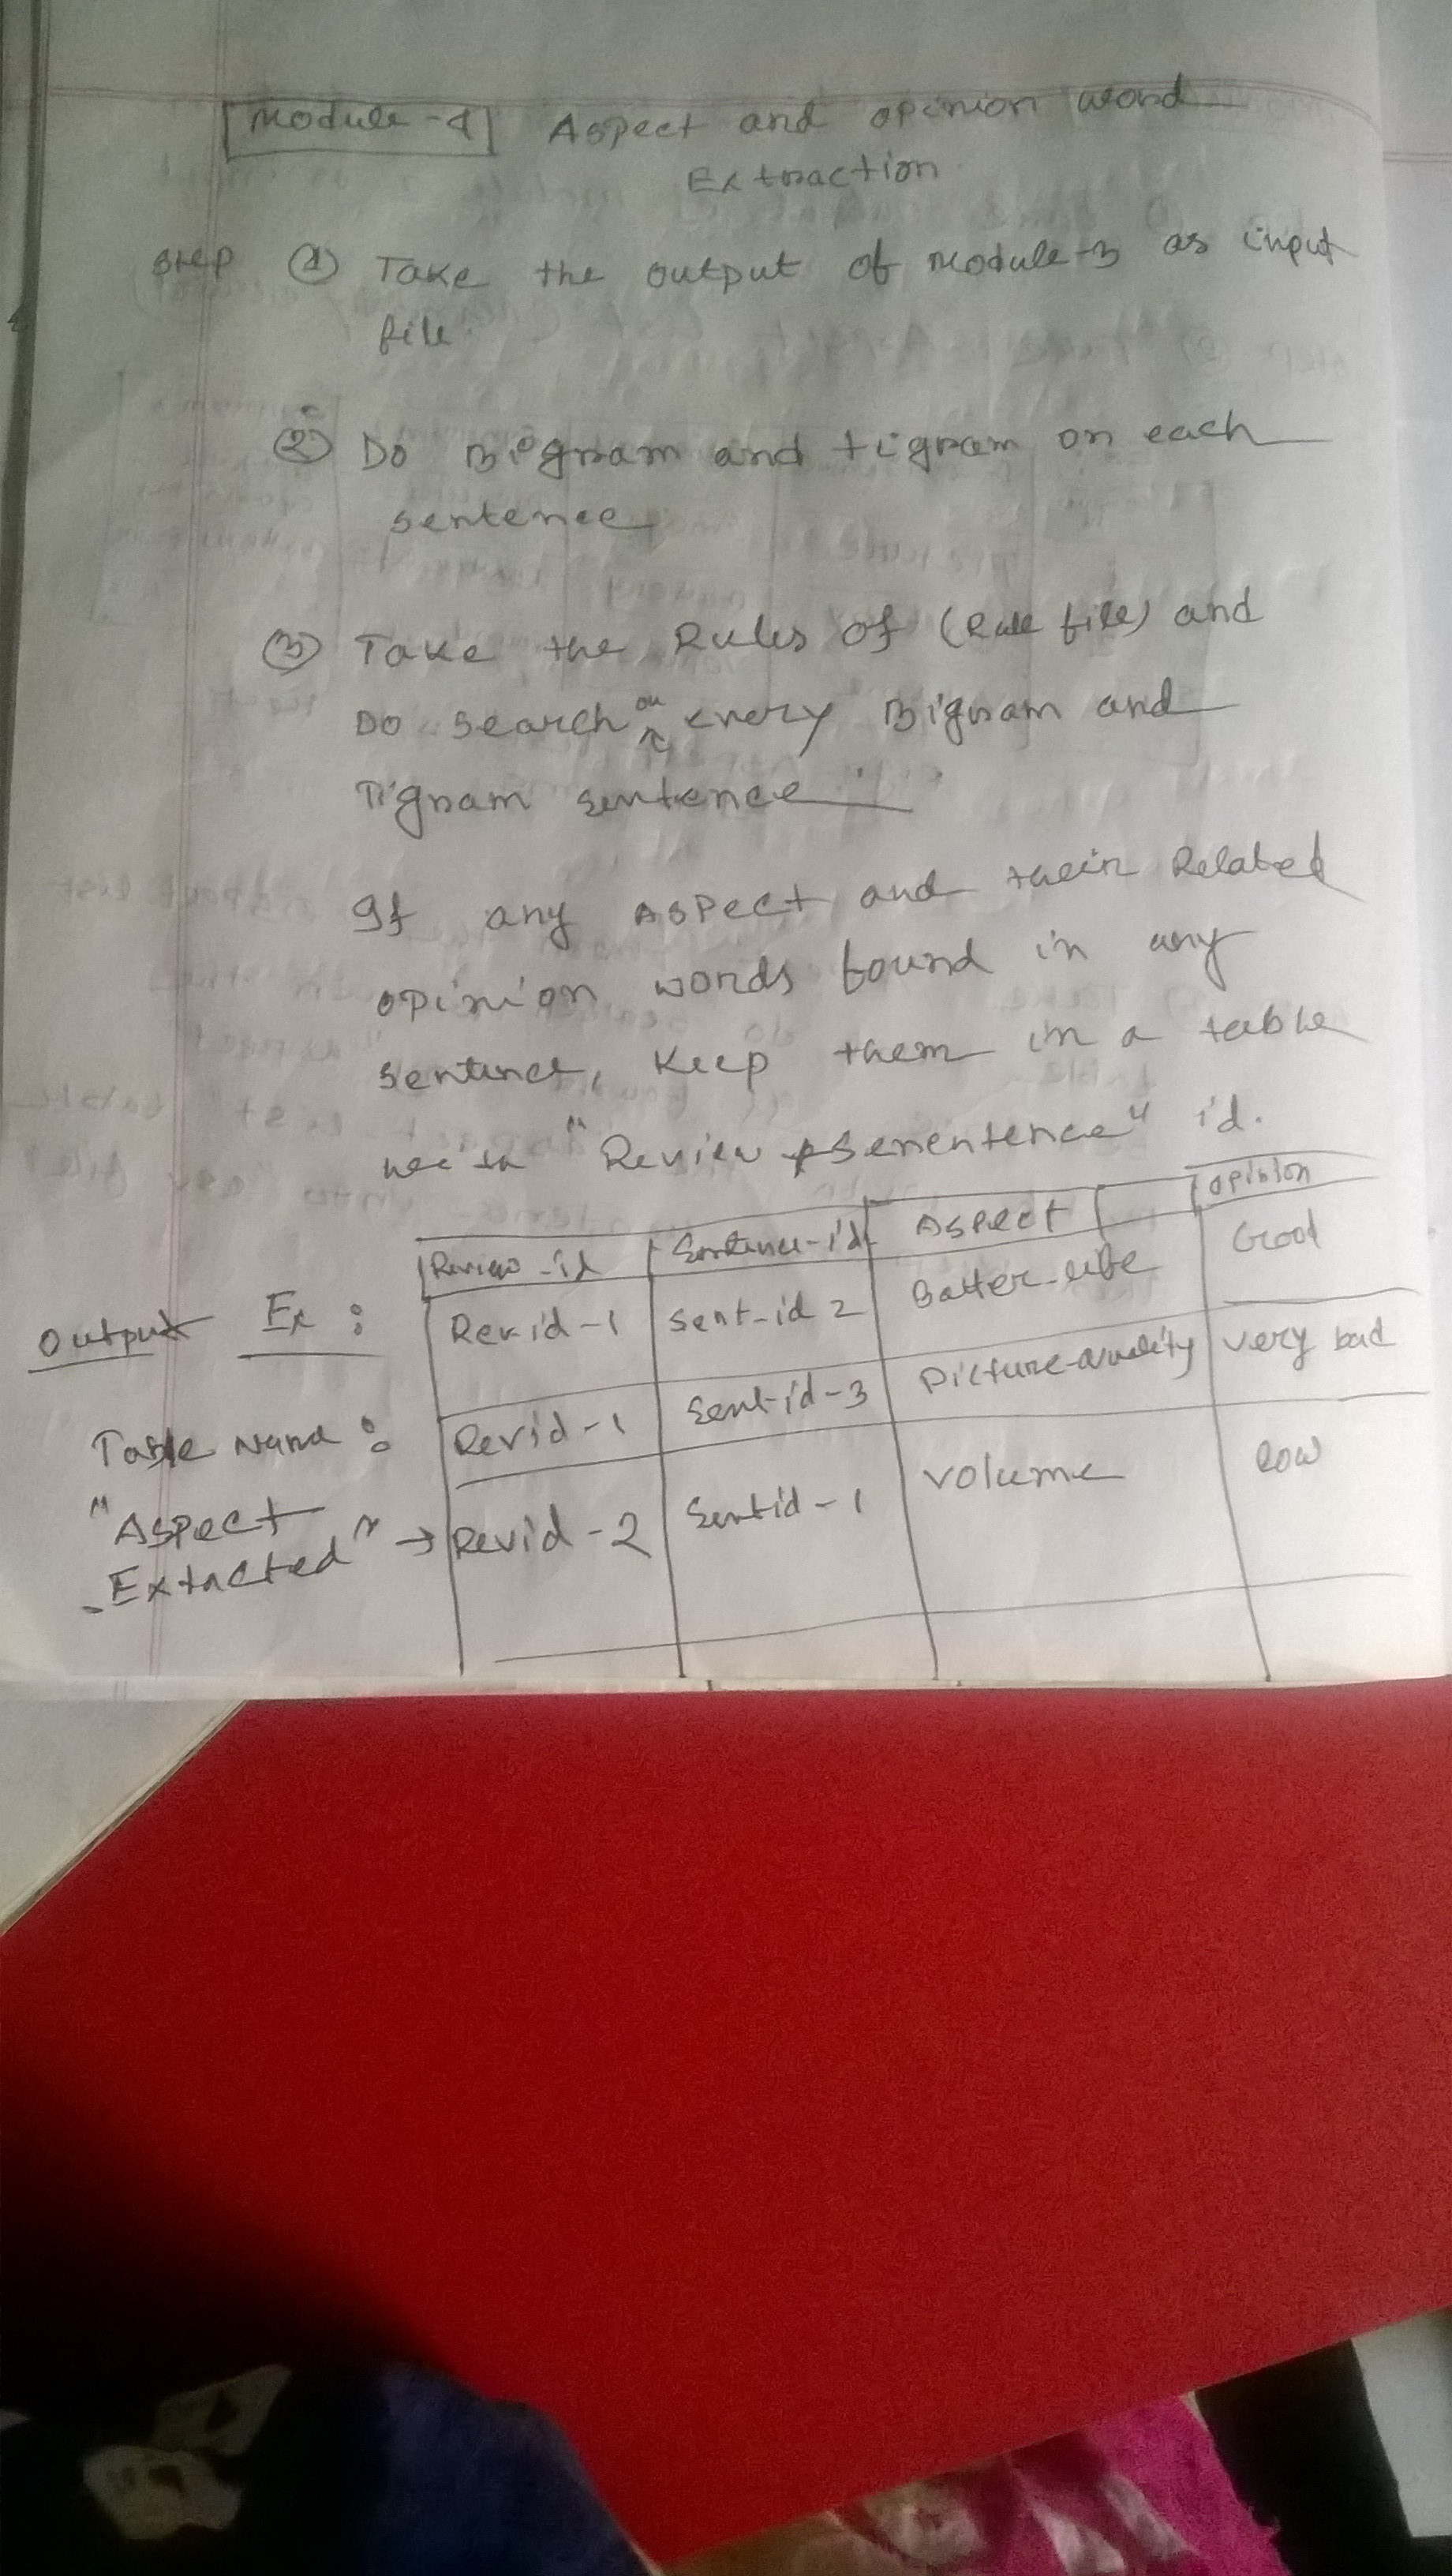 Module-4 Aspect and opinion word
Extraction
Step ① Take the output of Module-3 as input
file.
② Do Bigram and tigram on each
sentence
③ Take the Rules of (Rule file) and
Do search on every Bigram and
Tigram sentence
If any Aspect and their Related
opinion words found in any
sentence, Keep them in a table
"Review Senentence" id.
Review-id Sentence-id Aspect opinion
Output Ex : Rev.id-1 Sent-id 2 Batter-life Good
Revid-1 Sent-id-3 Picture-quality very bad
Table Name :
"Aspect
Extacted" → Revid-2 Sentid-1 volume low